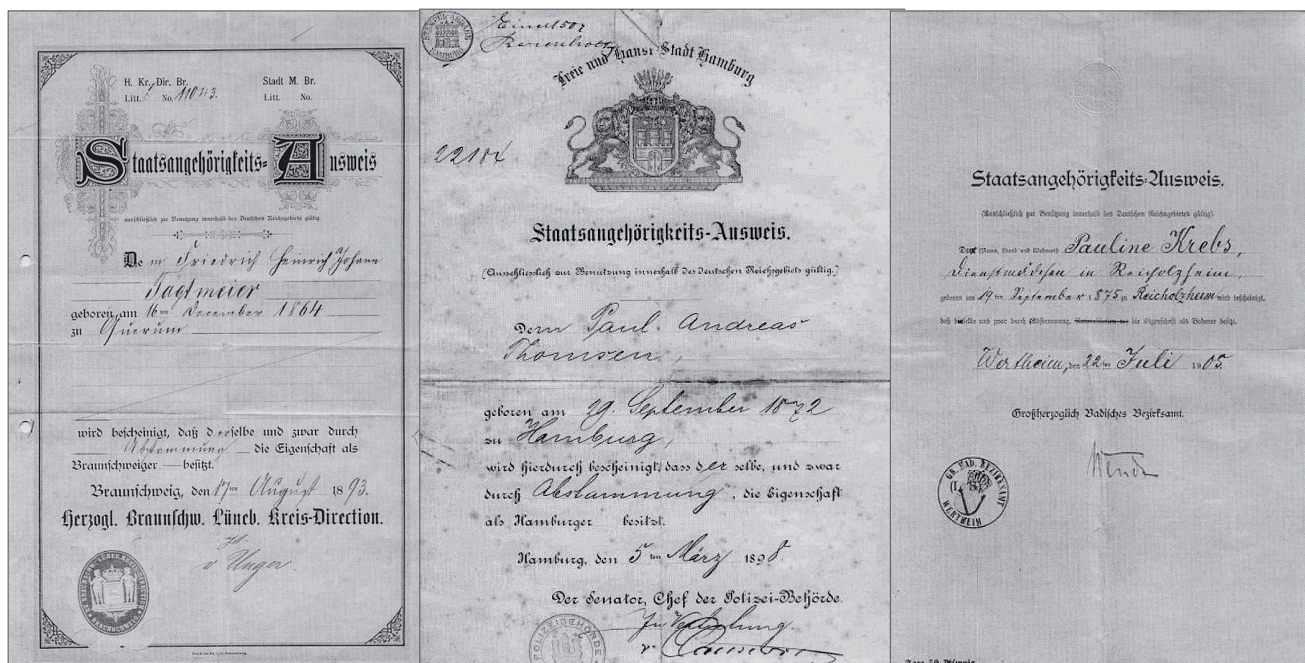 H. Kr. Dir. Br.
Stadt M. Br.
Litt. No. 11043.
Litt. No.
Staatsangehörigkeits-Ausweis
ausschließlich zur Benutzung innerhalb des Deutschen Reichsgebiets gültig.
Dem Friedrich Heinrich Johann
Tagtmeier
geboren am 16ten December 1864
zu Querum
wird bescheinigt, daß derselbe und zwar durch
Abstammung die Eigenschaft als
Braunschweiger besitzt.
Braunschweig, den 17ten August 1893.
Herzogl. Braunschw. Lüneb. Kreis-Direction.
v Unger.
STEMPEL-ABGABE HAMBURG
Freie und Hanse-Stadt Hamburg
Staatsangehörigkeits-Ausweis.
(Ausschliesslich zur Benutzung innerhalb des deutschen Reichsgebiets gültig.)
Dem Paul Andreas
Thomsen,
geboren am 29. September 1872
zu Hamburg,
wird hierdurch bescheinigt, dass derselbe, und zwar
durch Abstammung, die Eigenschaft
als Hamburger besitzt.
Hamburg, den 5ten März 1898
Der Senator, Chef der Polizei-Behörde
In Vertretung.
POLIZEIBEHÖRDE
Staatsangehörigkeits-Ausweis.
(Ausschließlich zur Benützung innerhalb des Deutschen Reichsgebietes gültig).
(Name, Stand und Wohnort) Pauline Krebs,
Dienstmädchen in Reicholzheim,
geboren am 19ten September 1875 zu Reicholzheim wird bescheinigt,
daß dieselbe und zwar durch Abstammung, die Eigenschaft als Badener besitzt.
Wertheim, den 22ten Juli 1905.
Großherzoglich Badisches Bezirksamt.
GR. BAD. BEZIRKSAMT WERTHEIM